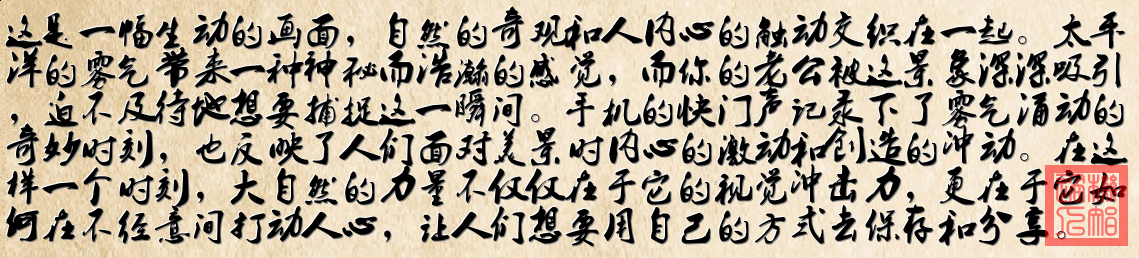 这是一幅生动的画面，自然的奇观和人内心的触动交织在一起。太平
洋的雾气带来一种神秘而浩瀚的感觉，而你的老公被这景象深深吸引
，迫不及待地想要捕捉这一瞬间。手机的快门声记录下了雾气涌动的
奇妙时刻，也反映了人们面对美景时内心的激动和创造的冲动。在这
样一个时刻，大自然的力量不仅仅在于它的视觉冲击力，更在于它如
何在不经意间打动人心，让人们想要用自己的方式去保存和分享。